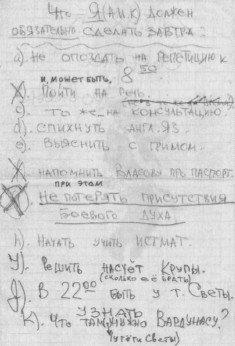 Что Я (А и К) должен
обязательно сделать завтра:
а). Не опоздать на репетицию к 8 50
и, может быть,
Пойти на речь.
с). то же на консультацию.
d). спихнуть англ. яз.
е). Выяснить с гримом.
напомнить Власову про паспорт.
при этом
Не потерять присутствия
боевого духа
h). Начать учить истмат.
У). Решить насчёт Крупы.
(сколько её брать)
J). В 22 00 быть у т. Светы.
К). Что узнать там нужно Вардунасу?
(у тёти Светы)